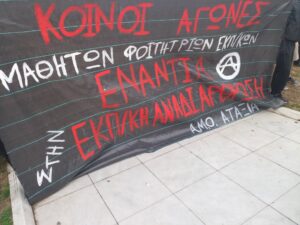 ΚΟΙΝΟΙ ΑΓΩΝΕΣ
ΜΑΘΗΤΩΝ ΦΟΙΤΗΤΡΙΩΝ ΕΚΠ/ΚΩΝ
ΕΝΑΝΤΙΑ
ΣΤΗΝ
ΕΚΠ/ΚΗ ΑΝΑΔΙΑΡΘΡΩΣΗ
ΑΜΘ. ΑΤΑΞΙΑ